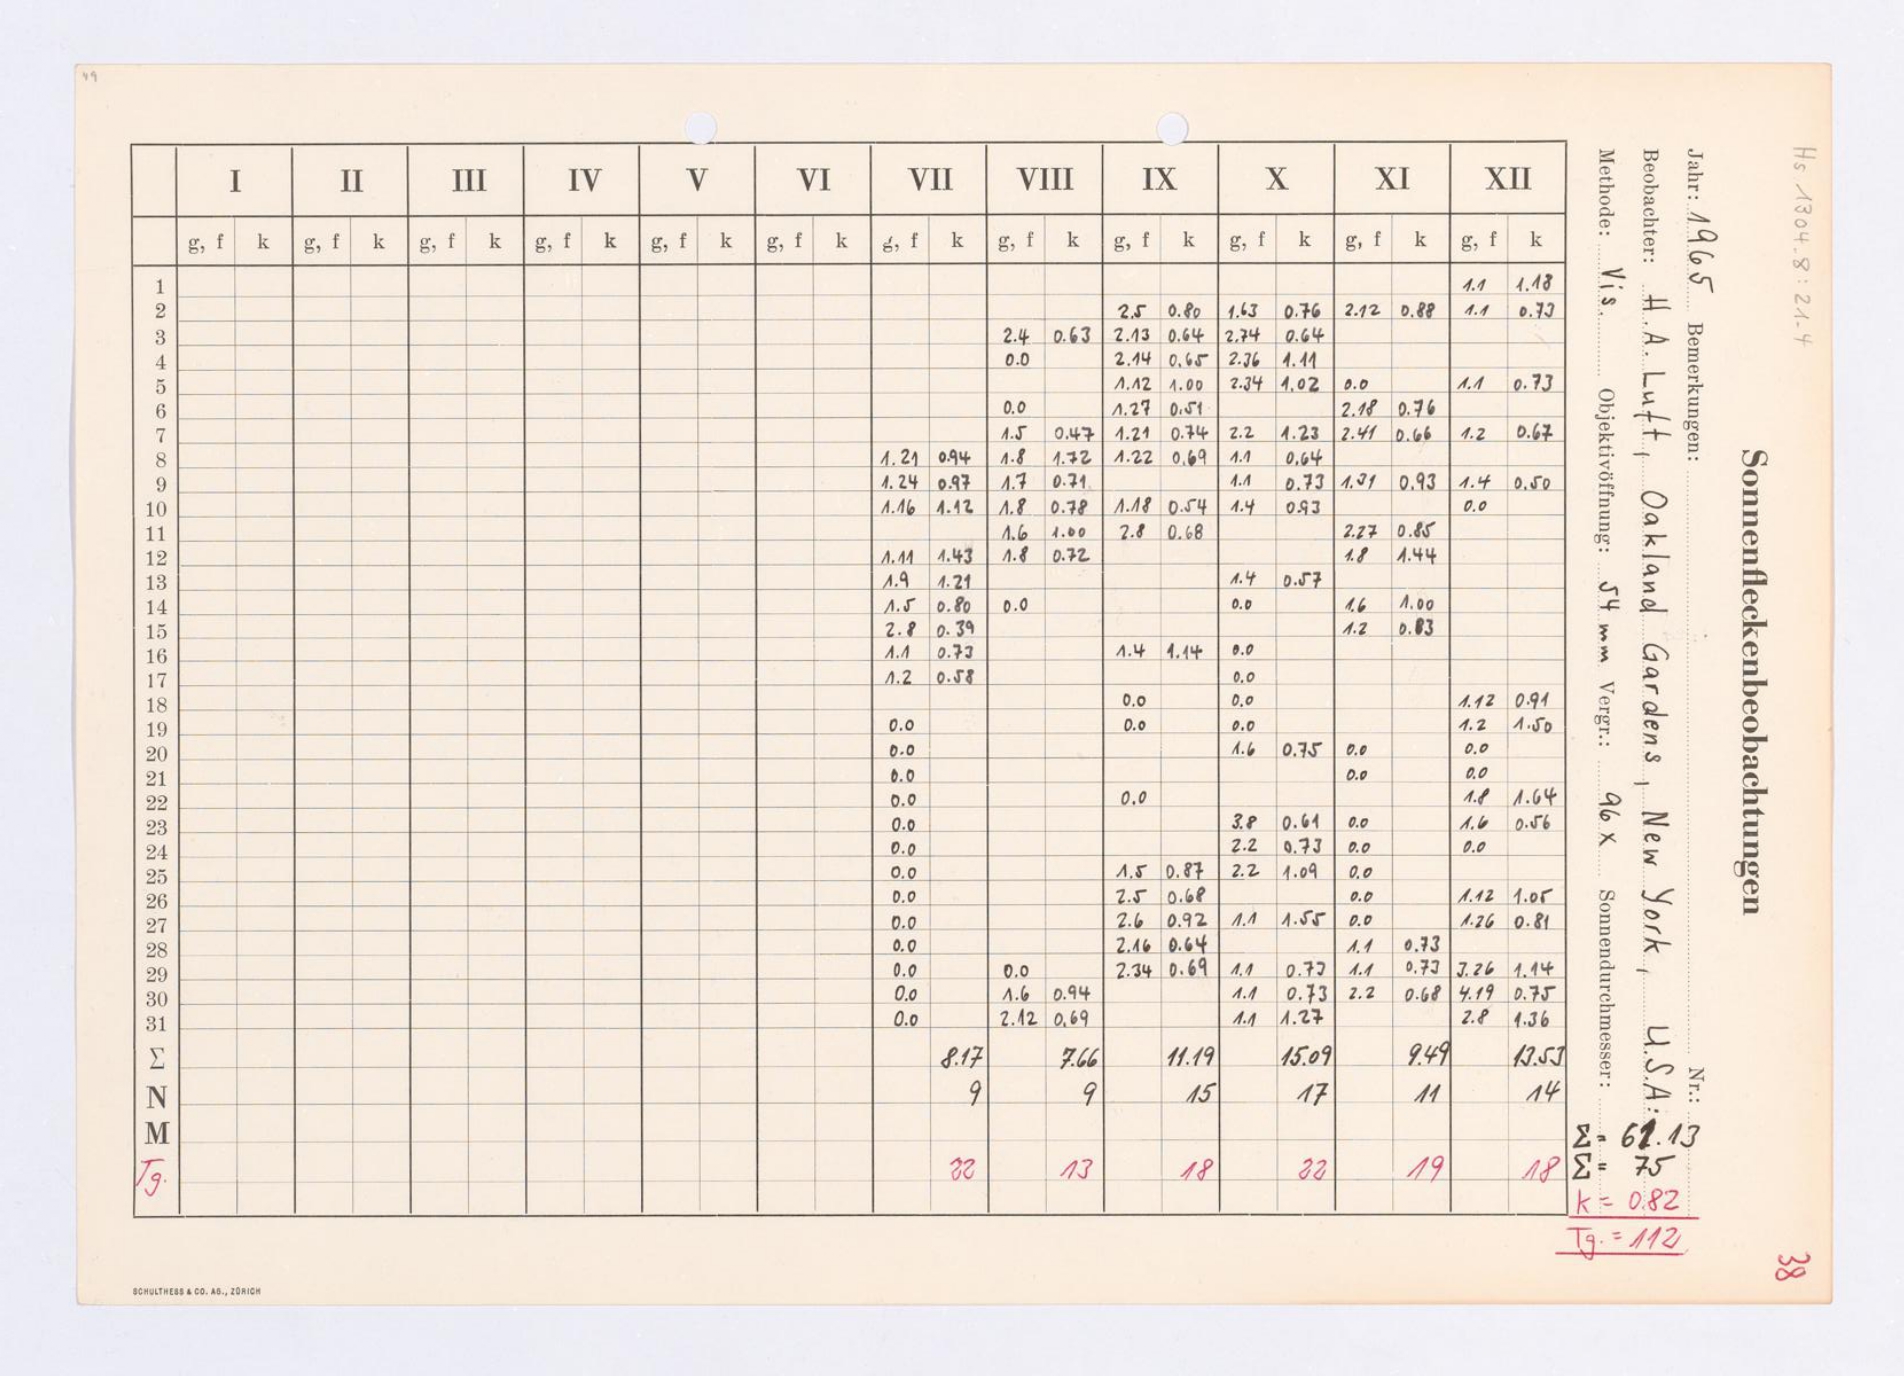 49
Hs 1304.8:21.4
Sonnenfleckenbeobachtungen
Jahr: 1965 Bemerkungen: Nr.:
Beobachter: H.A. Luft, Oakland Gardens, New York, U.S.A.
Methode: Vis. Objektivöffnung: 54 mm Vergr.: 96 x Sonnendurchmesser:
I II III IV V VI VII VIII IX X XI XII
g, f k g, f k g, f k g, f k g, f k g, f k g, f k g, f k g, f k g, f k g, f k g, f k
1 1.1 1.18
2 2.5 0.80 1.63 0.76 2.12 0.88 1.1 0.73
3 2.4 0.63 2.13 0.64 2.74 0.64
4 0.0 2.14 0.65 2.36 1.11
5 1.12 1.00 2.34 1.02 0.0 1.1 0.73
6 0.0 1.27 0.51 2.18 0.76
7 1.5 0.47 1.21 0.74 2.2 1.23 2.41 0.66 1.2 0.67
8 1.21 0.94 1.8 1.72 1.22 0.69 1.1 0.64
9 1.24 0.97 1.7 0.71 1.1 0.73 1.31 0.93 1.4 0.50
10 1.16 1.12 1.8 0.78 1.18 0.54 1.4 0.93 0.0
11 1.6 1.00 2.8 0.68 2.27 0.85
12 1.11 1.43 1.8 0.72 1.8 1.44
13 1.9 1.21 1.4 0.57
14 1.5 0.80 0.0 0.0 1.6 1.00
15 2.8 0.39 1.2 0.83
16 1.1 0.73 1.4 1.14 0.0
17 1.2 0.58 0.0
18 0.0 0.0 1.12 0.91
19 0.0 0.0 0.0 1.2 1.50
20 0.0 1.6 0.75 0.0 0.0
21 0.0 0.0 0.0
22 0.0 0.0 1.8 1.64
23 0.0 3.8 0.61 0.0 1.6 0.56
24 0.0 2.2 0.73 0.0 0.0
25 0.0 1.5 0.87 2.2 1.09 0.0
26 0.0 2.5 0.68 0.0 1.12 1.05
27 0.0 2.6 0.92 1.1 1.55 0.0 1.26 0.81
28 0.0 2.16 0.64 1.1 0.73
29 0.0 0.0 2.34 0.69 1.1 0.73 1.1 0.73 3.26 1.14
30 0.0 1.6 0.94 1.1 0.73 2.2 0.68 4.19 0.75
31 0.0 2.12 0.69 1.1 1.27 2.8 1.36
Σ 8.17 7.66 11.19 15.09 9.49 13.53
N 9 9 15 17 11 14
M
Tg. 22 13 18 22 19 18
Σ = 61.13
Σ = 75
k = 0.82
Tg. = 112
38
SCHULTHESS & CO. AG., ZÜRICH